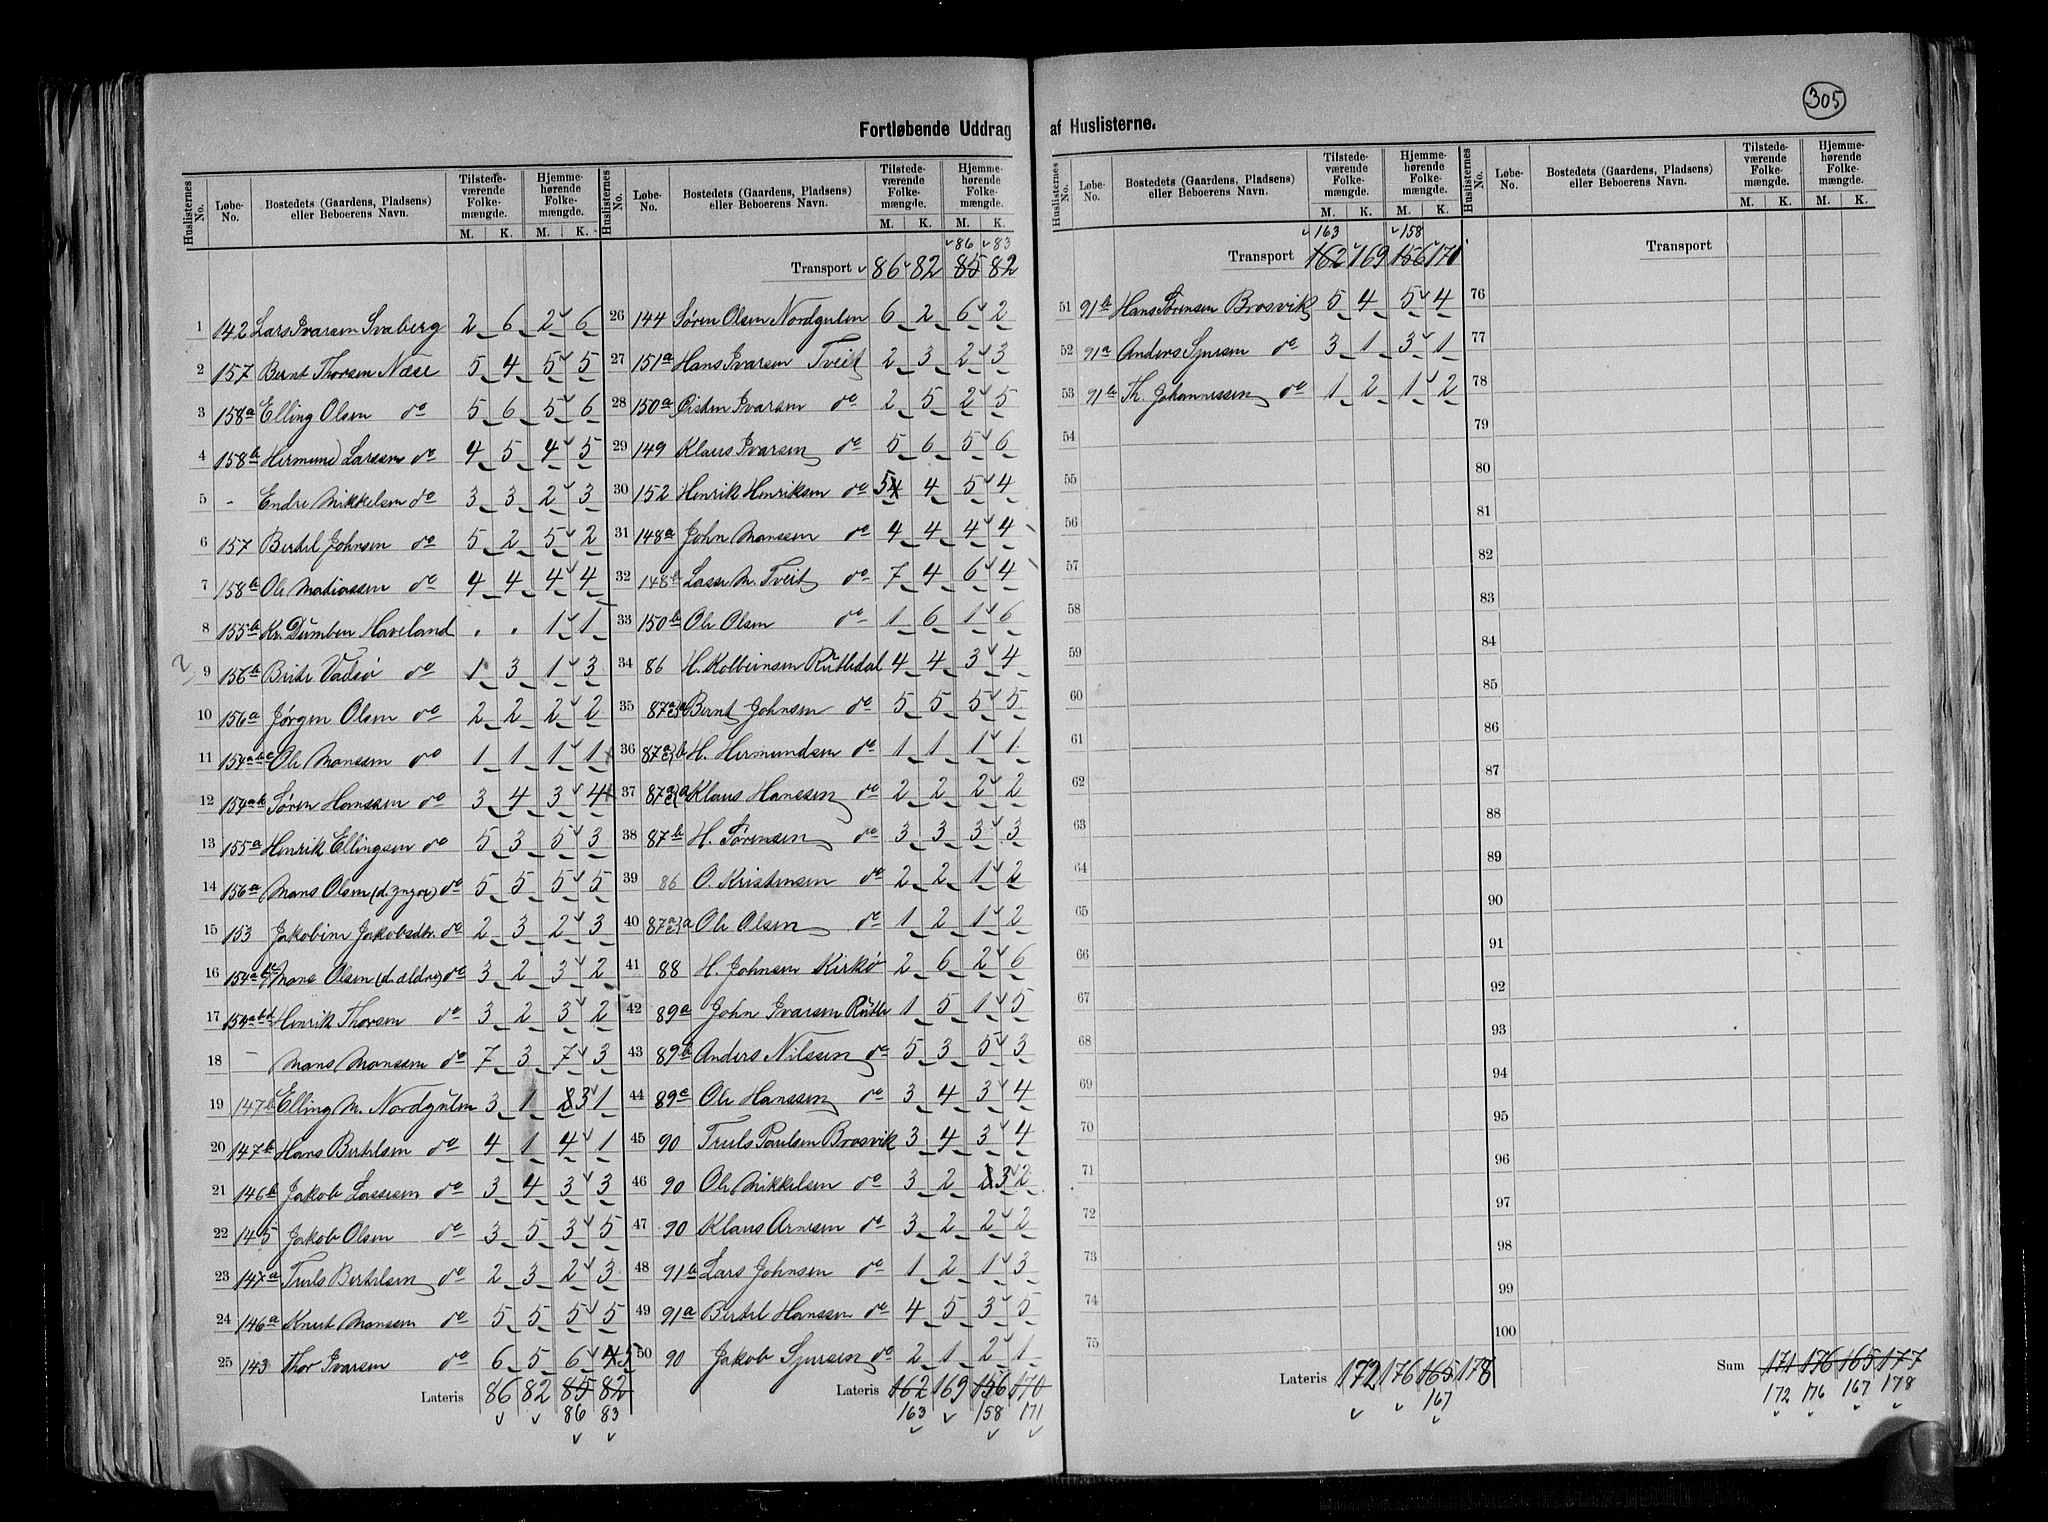 305
Fortløbende Uddrag af Huslisterne.
Huslisternes No. Løbe-No. Bostedets (Gaardens, Pladsens) eller Beboerens Navn. Tilstedeværende Folkemængde. M. K. Hjemmehørende Folkemængde. M. K.
1 142 Lars Ivarsen Svaberg 2 6 2 6
2 157 Bernt Thorsen Næse 5 4 5 5
3 158a Elling Olsen do 5 6 5 6
4 158b Hermund Larsen do 4 5 4 5
5 - Endre Mikkelsen do 3 3 2 3
6 157 Bertel Johnsen do 5 2 5 2
7 158a Ole Matiassen do 4 4 4 4
8 155b Kr. Dumben Haveland . . 1 1
9 156b Brite Vadsø do 1 3 1 3
10 156a Jørgen Olsen do 2 2 2 2
11 154abc Ole Monsen do 1 1 1 1
12 154ab Søren Hanssen do 3 4 3 4
13 155a Henrik Ellingsen do 5 3 5 3
14 156a Mons Olsen (d. yngre) do 5 5 5 5
15 153 Jakobine Jakobsdtr. do 2 3 2 3
16 154abc Mons Olsen (d. ældre) do 3 2 3 2
17 154abd Henrik Thorsen do 3 2 3 2
18 - Mons Monssen do 7 3 7 3
19 147b Elling M. Nordgulen 3 1 3 1
20 147b Hans Bertelsen do 4 1 4 1
21 146b Jakob Lassesen do 3 4 3 3
22 145 Jakob Olsen do 3 5 3 5
23 147a Truls Bertelsen do 2 3 2 3
24 146a Knut Monssen do 5 5 5 5
25 143 Thor Ivarsen do 6 5 6 5
Lateris 86 82 85 82
86 83
Huslisternes No. Løbe-No. Bostedets (Gaardens, Pladsens) eller Beboerens Navn. Tilstedeværende Folkemængde. M. K. Hjemmehørende Folkemængde. M. K.
86 83
Transport 86 82 85 82
26 144 Søren Olsen Nordgulen 6 2 6 2
27 151a Hans Ivarsen Tveit 2 3 2 3
28 150a Østen Ivarsen do 2 5 2 5
29 149 Klaus Ivarsen do 5 6 5 6
30 152 Henrik Henriksen do 5 4 5 4
31 148a John Monssen do 4 4 4 4
32 148b Lasse M. Tveit do 7 4 6 4
33 150b Ole Olsen do 1 6 1 6
34 86 H. Kolbeinsen Rutledal 4 4 3 4
35 87a a Bernt Johnsen do 5 5 5 5
36 87a b H. Hermundsen do 1 1 1 1
37 87a a Klaus Hanssen do 2 2 2 2
38 87b H. Sørensen do 3 3 3 3
39 86 O. Kristensen do 2 2 1 2
40 87a a Ole Olsen do 1 2 1 2
41 88 H. Johnsen Kirkø 2 6 2 6
42 89a John Ivarsen Rutle 1 5 1 5
43 89b Anders Nilssen do 5 3 5 3
44 89a Ole Hanssen do 3 4 3 4
45 90 Truls Paulsen Brosvik 3 4 3 4
46 90 Ole Mikkelsen do 3 2 3 2
47 90 Klaus Arnesen do 3 2 2 2
48 91b Lars Johnsen do 1 2 1 3
49 91a Bertel Hanssen do 4 5 3 5
50 90 Jakob Sjursen do 2 1 2 1
Lateris 162 169 156 170
163 158 171
Huslisternes No. Løbe-No. Bostedets (Gaardens, Pladsens) eller Beboerens Navn. Tilstedeværende Folkemængde. M. K. Hjemmehørende Folkemængde. M. K.
163 158
Transport 162 169 156 171
51 91b Hans Sørensen Brosvik 5 4 5 4
52 91a Anders Sjursen do 3 1 3 1
53 91b Th. Johannessen do 1 2 1 2
54
55
56
57
58
59
60
61
62
63
64
65
66
67
68
69
70
71
72
73
74
75
Lateris 172 176 165 178
167
Huslisternes No. Løbe-No. Bostedets (Gaardens, Pladsens) eller Beboerens Navn. Tilstedeværende Folkemængde. M. K. Hjemmehørende Folkemængde. M. K.
Transport
76
77
78
79
80
81
82
83
84
85
86
87
88
89
90
91
92
93
94
95
96
97
98
99
100
Sum 171 176 165 177
172 176 167 178